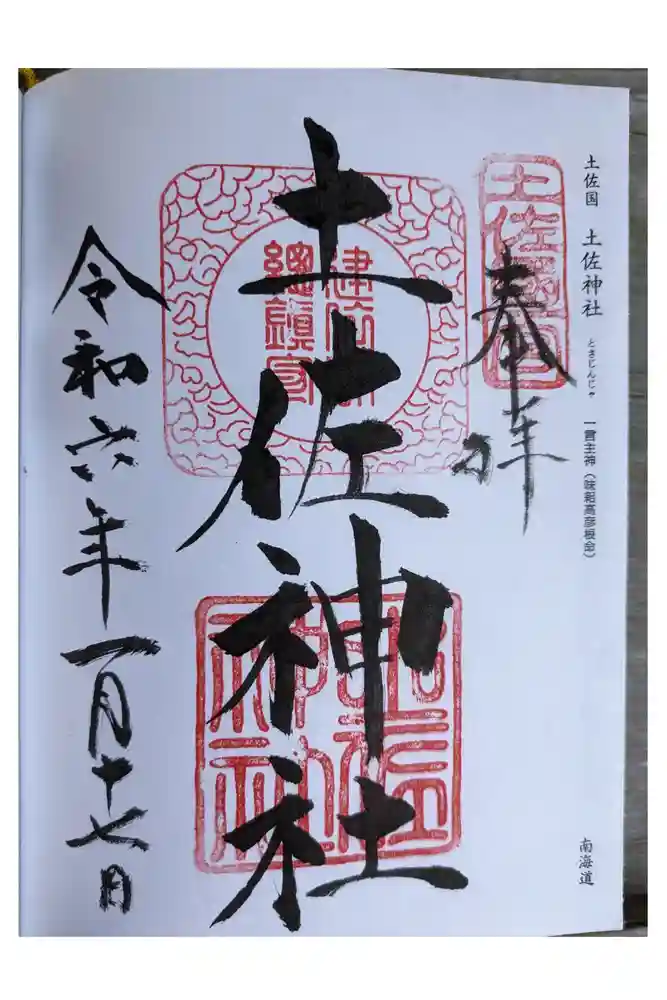 土佐国 土佐神社 とさじんじゃ 一言主神（味鉏高彦根命）
南海道
土佐國一宮
奉拝
建依別
總鎮守
土佐神社
土佐
神社
令和六年一月十七日